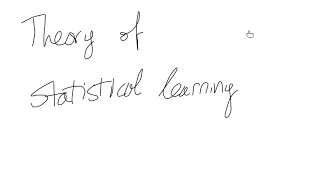 Theory of
statistical learning